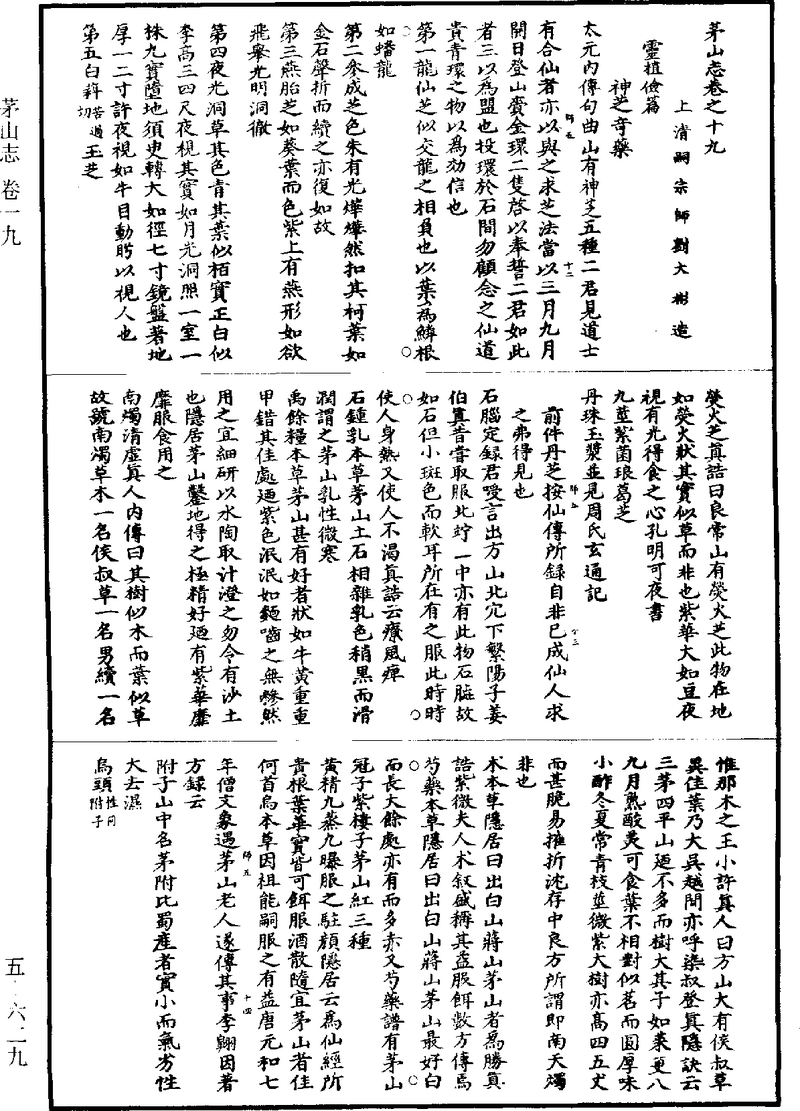 茅山志 卷一九
五·六二九
茅山志卷之十九
上清嗣宗師劉大彬造
靈植儉篇
神芝奇藥
太元內傳句曲山有神芝五種二君見道士
有合仙者亦以與之求芝法當以三月九月
開日登山賫金環二隻啓以奉誓二君如此
者三以為盟也投環於石間勿顧念之仙道
貴青環之物以為効信也
第一龍仙芝似交龍之相負也以葉為鱗根
如蟠龍
第二參成芝色朱有光燁燁然扣其柯葉如
金石聲折而續之亦復如故
第三燕胎芝如葵葉而色紫上有燕形如欲
飛舉光明洞徹
第四夜光洞草其色青其葉似栢實正白似
李高三四尺夜視其實如月光洞照一室一
株九實墮地須臾轉大如徑七寸鏡盤著地
厚一二寸許夜視如牛目動眄以視人也
第五白㪺苦過切玉芝
熒火芝真誥曰良常山有熒火芝此物在地
如熒火狀其實似草而非也紫華大如豆夜
視有光得食之心孔明可夜書
九莖紫菌琅葛芝
丹珠玉漿並見周氏玄通記
前件丹芝按仙傳所録自非已成仙人求
之弗得見也
石腦定録君嗳言出方山北穴下繁陽子姜
伯真昔嘗取服北坹一中亦有此物石腦故
如石但小斑色而軟耳所在有之服此時時
使人身熱又使人不渴真誥云療風痺
石鍾乳本草茅山土石相雜乳色稍黑而滑
潤謂之茅山乳性微寒
禹餘糧本草茅山甚有好者狀如牛黃重重
甲錯其佳處廼紫色泯泯如麫嚙之無糝然
用之宜細研以水陶取汁澄之勿令有沙土
也隱居茅山鑿地得之極精好廼有紫華靡
靡服食用之
南燭清虛真人內傳曰其樹似木而葉似草
故號南燭草木一名侯叔草一名男續一名
惟那木之王小許真人曰方山大有侯叔草
異佳葉乃大吳越間亦呼染叔登真隱訣云
三茅四平山廼不多而樹大其子如茱萸八
九月熟酸美可食葉不相對似茗而圓厚味
小酢冬夏常青枝莖微紫大樹亦高四五丈
而甚脆易摧折沈存中良方所謂即南天燭
非也
朮本草隱居曰出白山蔣山茅山者為勝真
誥紫微夫人朮叙盛稱其益服餌數方傳焉
芍藥本草隱居曰出白山蔣山茅山最好白
而長大餘處亦有而多赤又芍藥譜有茅山
冠子紫樓子茅山紅三種
黃精九蒸九曝服之駐顔隱居云為仙經所
貴根葉華實皆可餌服酒散隨宜茅山者佳
何首烏本草因祖能嗣服之有益唐元和七
年僧文象遇茅山老人遂傳其事李翺因著
方録云
附子山中名茅附比蜀產者實小而氣劣性
大去濕
烏頭性同附子